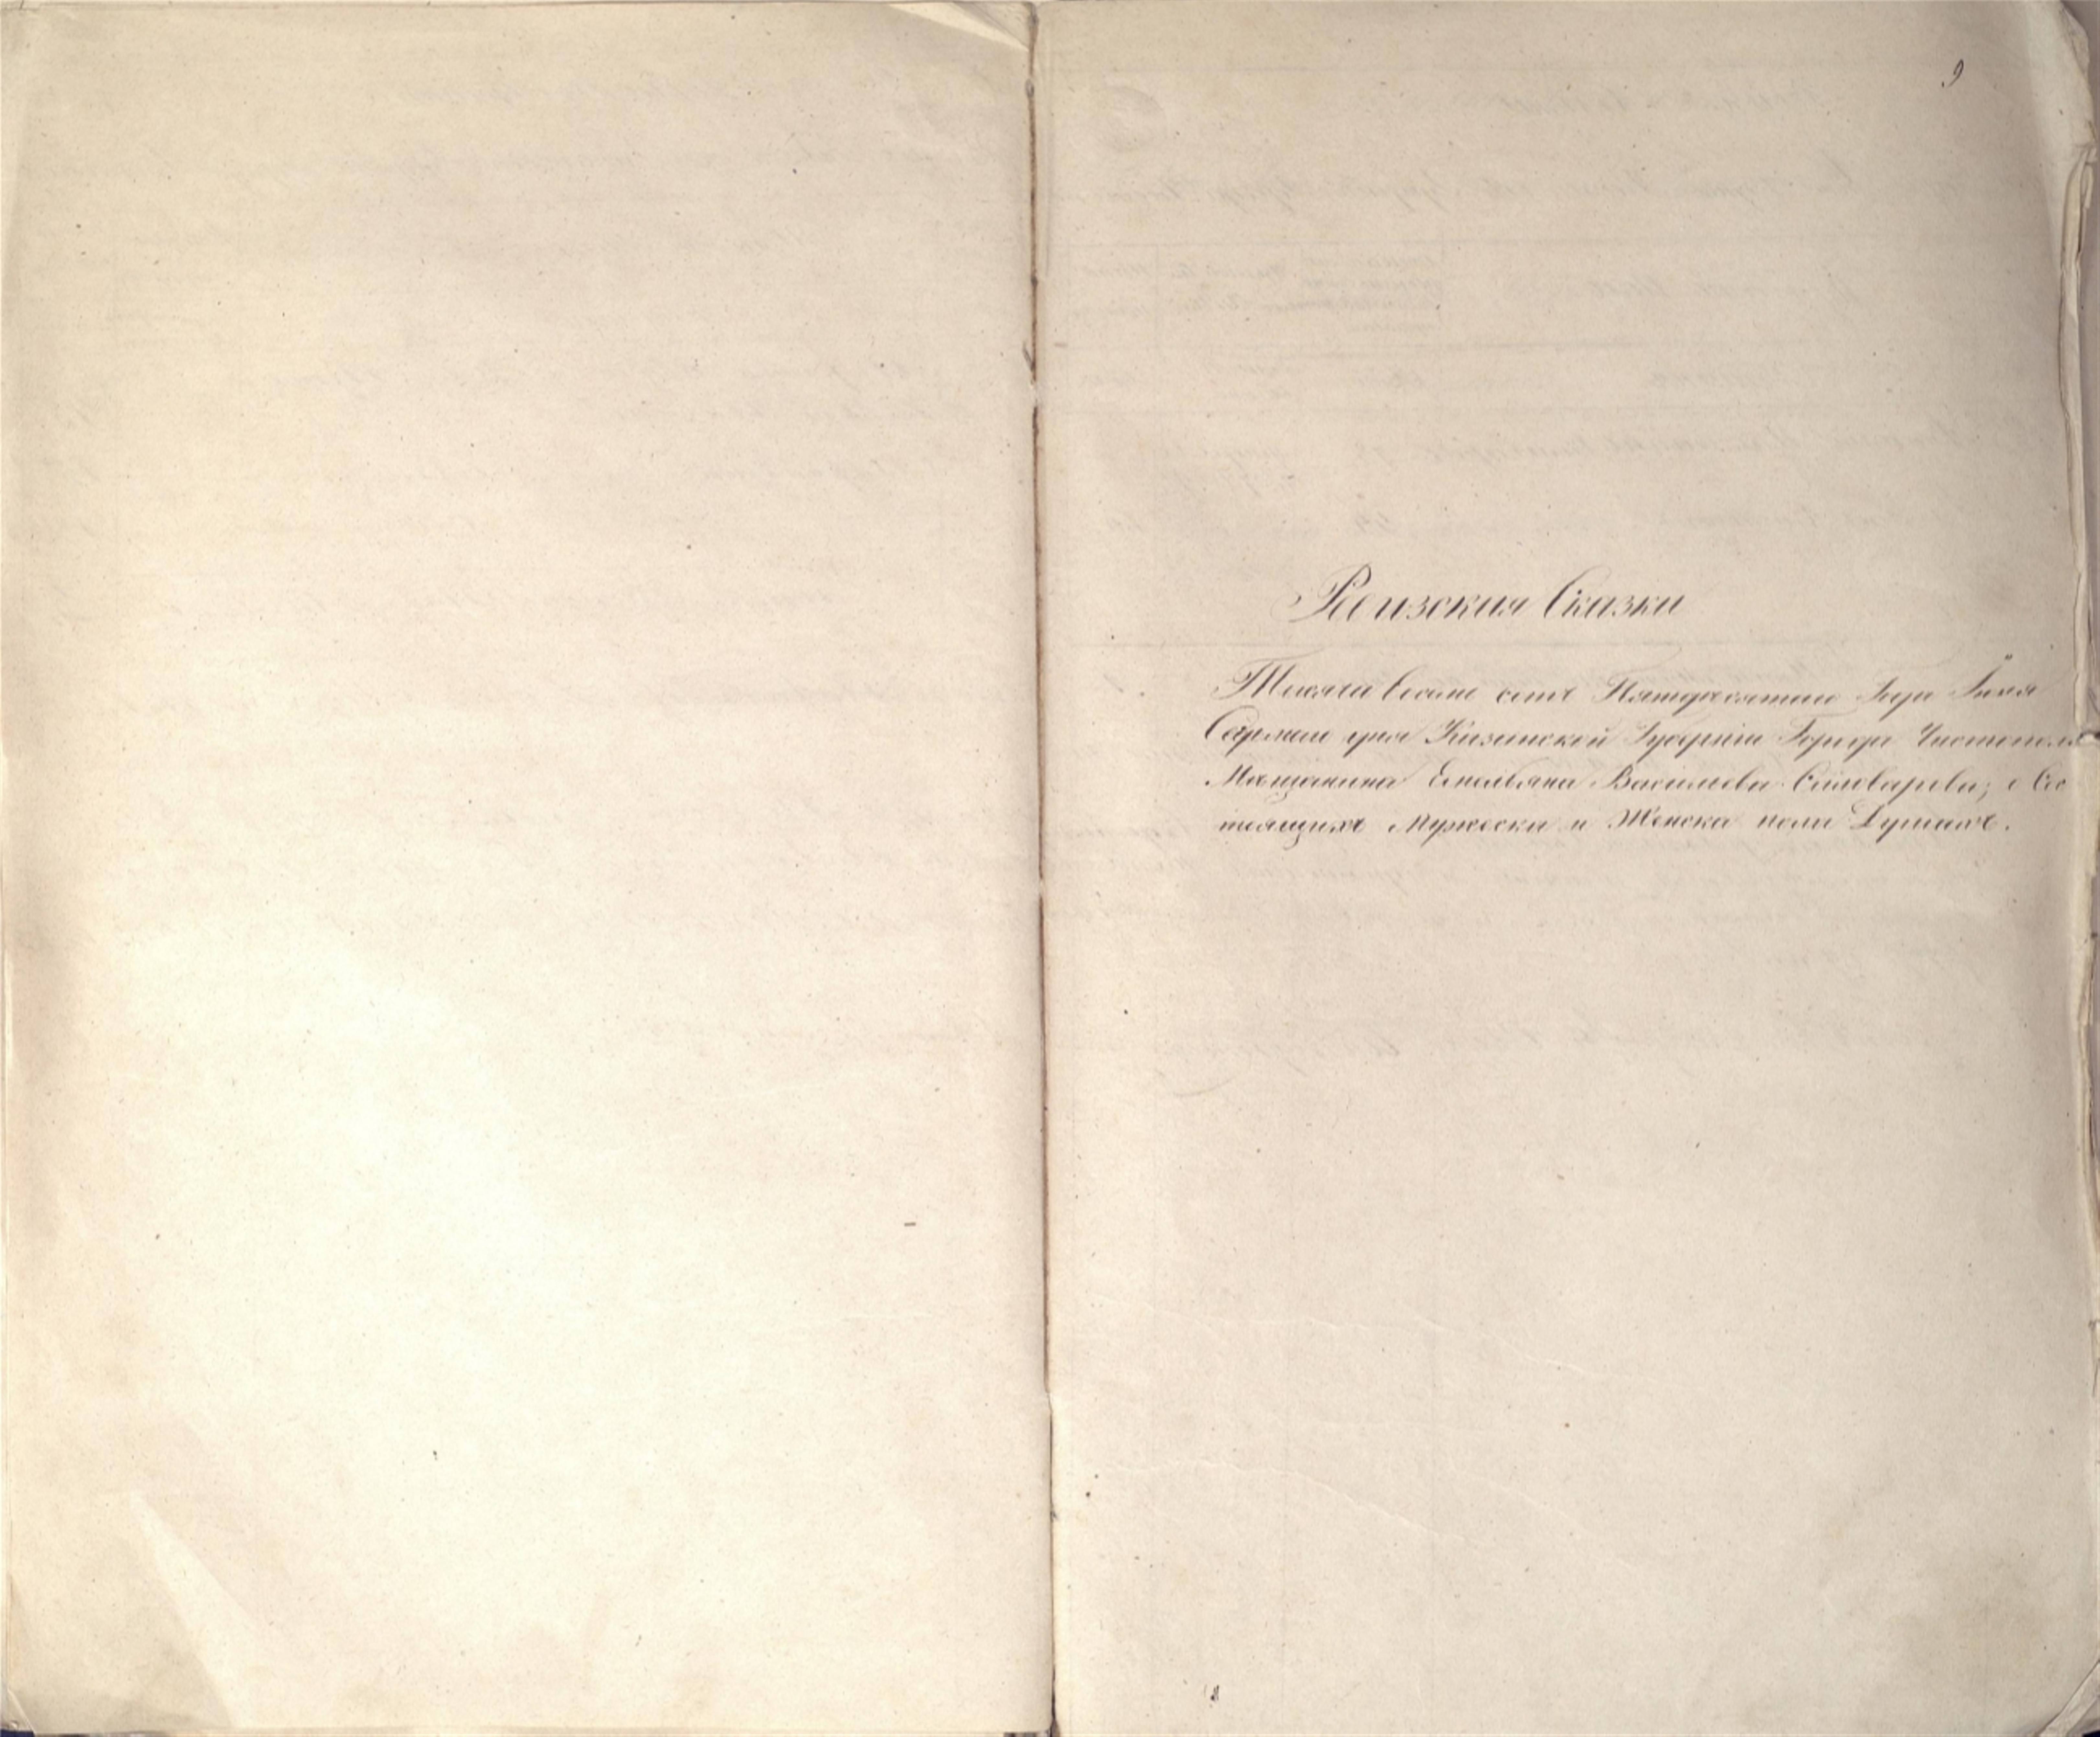 9
Ревизския Сказки
Тысяча восемь сотъ Пятдесятаго Года Iюля
Седмаго дня Казанской Губернiи Города Чистополя
Мещанина Емельяна Васильева Сыловарова; о Сос
тоящихъ Мужеска и Женска пола Душахъ.